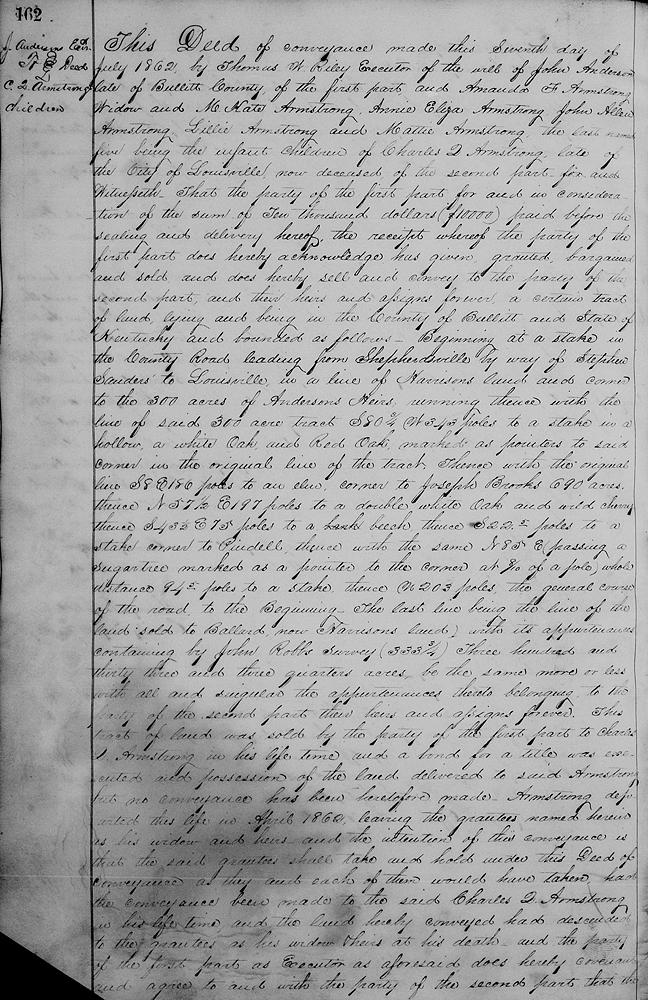 162
J. Anderson Exr.
To Deed
C. Q. Armstrong
Children
This Deed of conveyance made this Seventh day of
July 1862, by Thomas W. Riley Executor of the will of John Anderson
late of Bullitt County, of the first part and Amanda F. Armstrong
Widow and M Kate Armstrong, Annie Eliza Armstrong John Allan
Armstrong, Lillie Armstrong and Mattie Armstrong, the last named
five being the infant children of Charles Q Armstrong, late of
the City of Louisville, now deceased of the second part - for and
Witnesseth - That the party of the first part for and in considera-
tion of the sum of Ten thousand dollars ($10000) paid before the
sealing and delivery hereof, the receipt whereof the party of the
first part does hereby acknowledge has given, granted, bargained
and sold, and does hereby sell and convey to the party of the
second part, and their heirs and assigns forever, a certain tract
of land, lying and being in the County of Bullitt and State of
Kentucky and bounded as follows - Beginning at a stake in
the County Road leading from Shepherdsville by way of Stephen
Sanders to Louisville, in a line of Harrisons land and corner
to the 300 acres of Andersons Heirs, running thence with the
line of said 300 acre tract S 80 3/4 W 343 poles to a stake in a
hollow, a white Oak, and Red Oak, marked as pointers to said
corner in the original line of the tract, Thence with the original
line S 8 E 186 poles to an elm, corner to Joseph Brooks 690 acres,
thence N 57 1/2 E 197 poles to a double white Oak and wild cherry
thence S 43 1/2 E 75 poles to a beech thence S 22 poles to a
stake corner to Pindell, thence with the same N 85 E (passing a
sugartree marked as a pointer to the corner at of a pole) whole
distance 94 poles to a stake, thence N 203 poles, the general course
of the road, to the Beginning - The last line being the line of the
land sold to Ballard, now Harrisons land) with its appurtenances
containing by John Robbs Survey (333 3/4) Three hundred and
thirty three and three quarters acres, be the same more or less
with all and singular the appurtenances thereto belonging, to the
party of the second part their heirs and assigns forever. This
tract of land was sold by the party of the first part to Charles
Q. Armstrong in his life time and a bond for a title was exe-
cuted and possession of the land delivered to said Armstrong
but no conveyance has been heretofore made - Armstrong depar-
arted this life in April 1862, leaving the grantees named herein
as his widow and heirs - and the intention of this conveyance is
that the said grantees shall take and hold under this Deed of
conveyance as they and each of them would have taken, had
the conveyance been made to the said Charles Q Armstrong
in his life time, and the land hereby conveyed had descended
to the grantees as his widow & heirs at his death - and the party
of the first part as Executor as aforesaid does hereby covenant
and agree to and with the party of the second part that the